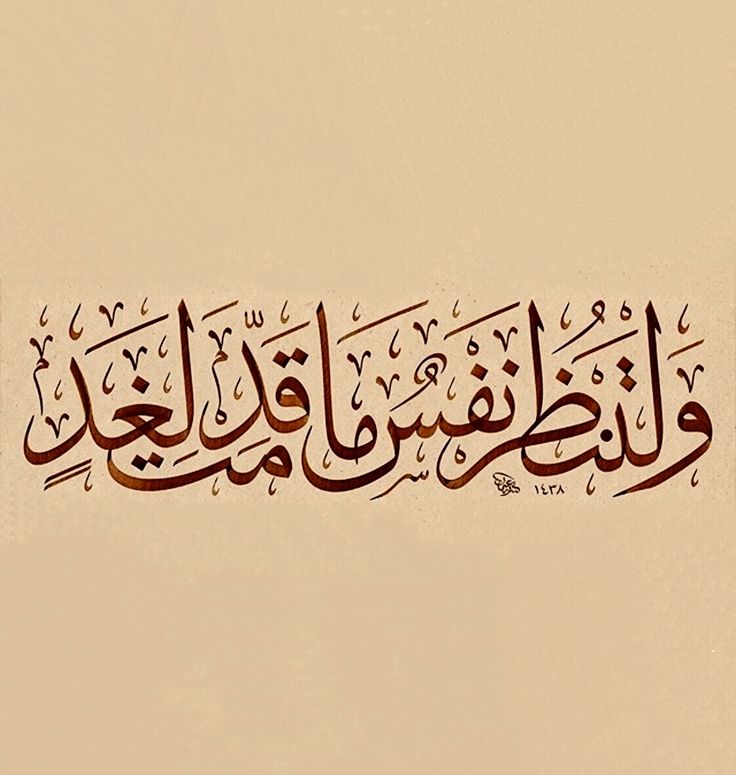 وَلْتَنْظُرْ نَفْسٌ مَا قَدَّمَتْ لِغَدٍ
١٤٣٨